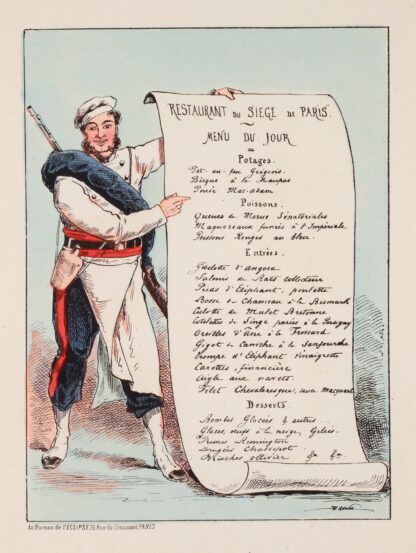 RESTAURANT DU SIEGE DE PARIS.
MENU DU JOUR
Potages.
Pot-au-feu Grégeois.
Bisque à la Maupas
Purée Mac-adam
Poissons.
Queues de Morue Sénatoriales
Maquereaux fumés à l'Impériale
Poissons Rouges au bleu.
Entrées.
Gibelotte d'angora
Salmis de Rats
Pieds d'Eléphant, poulette
Bosse de Chameau à la Bismark
Culotte de Mulet Bretonne
Cotelettes de Singe panées à la
Oreilles d'Ane à la Frossard
Gigot de Caniche à la
Trompe d'Eléphant vinaigrette
Carottes, financière
Aigle aux navets.
Filet Chevaleresque, sauce
Desserts
Bombes Glacées & autres
Glaces, œufs à la neige, Gelées.
Prunes Remington
Dragées Chassepot
Brioches Ollivier &a &a
Au Bureau de L'ECLIPSE 16 Rue du Croissant PARIS